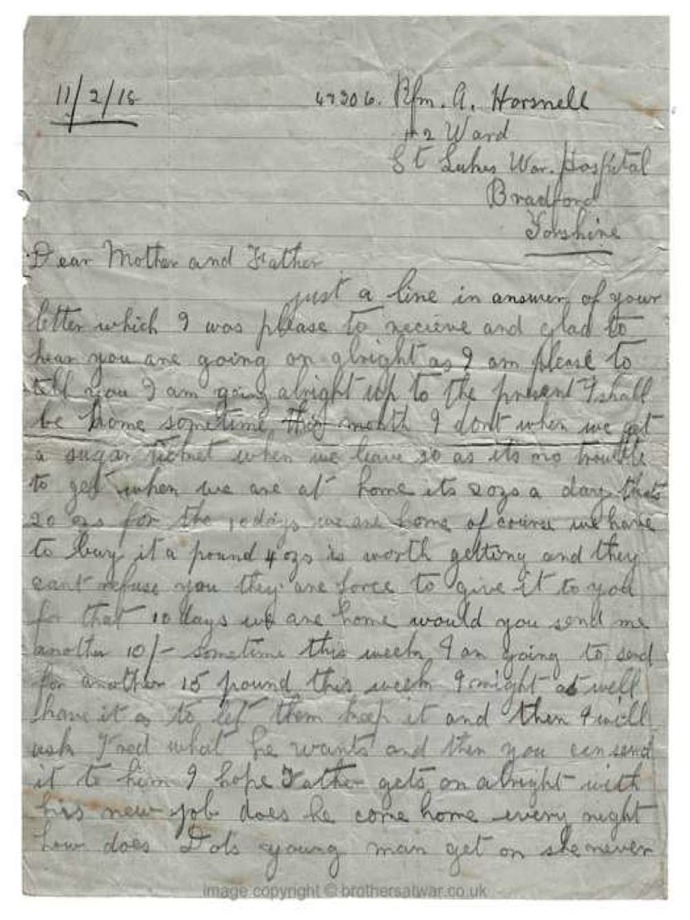 11/2/18
47306. Rfm. A. Horsnell
2 Ward
St Lukes War. Hospital
Bradford
Yorshire
Dear Mother and Father
just a line in answer of your
letter which I was please to recieve and glad to
hear you are going on alright as I am please to
tell you I am going alright up to the present I shall
be home sometime this month I dont when we get
a sugar ticket when we leave so as its no trouble
to get when we are at home its 2ozs a day thats
20 ozs for the 10 days we are home of course we have
to buy it a pound 4 ozs is worth getting and they
cant refuse you they are force to give it to you
for that 10 days we are home would you send me
another 10/- sometime this week I am going to send
for another 15 pound this week I might as well
have it as to let them keep it and then I will
ask Fred what he wants and then you can send
it to him I hope Father gets on alright with
his new job does he come home every night
how does Dols young man get on she never
image copyright © brothersatwar.co.uk